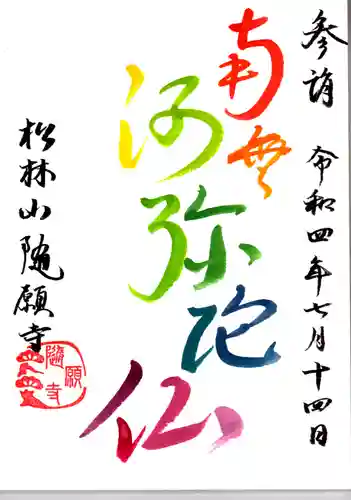 参詣 令和四年七月十四日
南無
阿弥陀
仏
松林山随願寺
随願寺